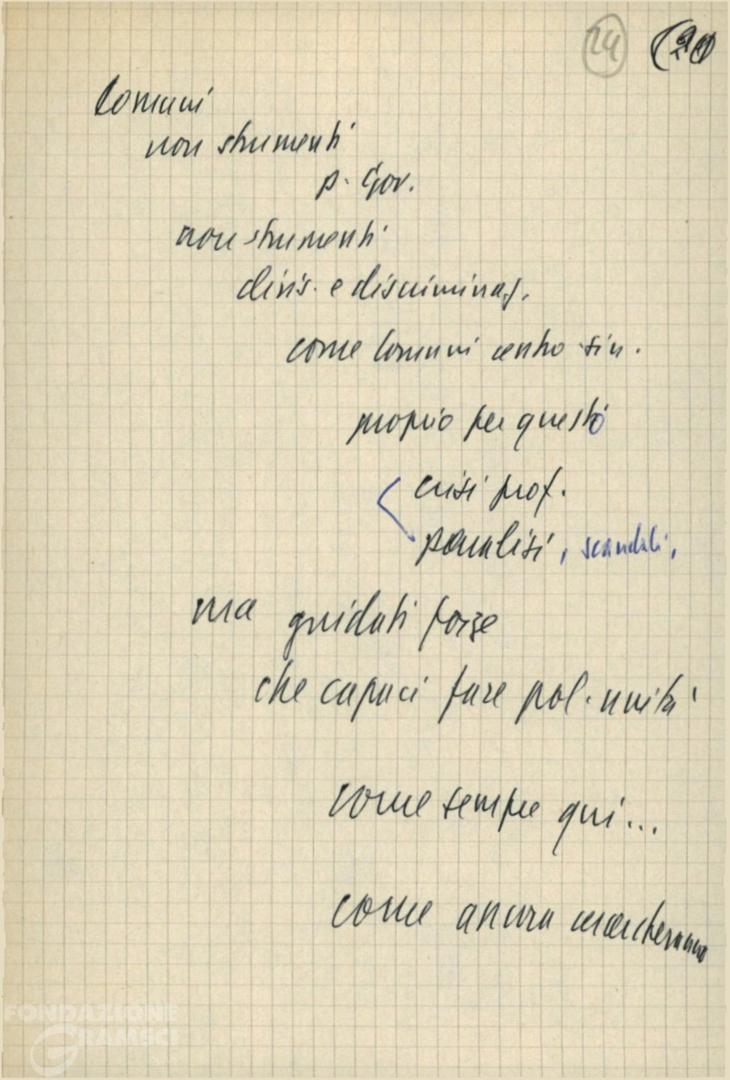 24 (20
Comuni
non strumenti
p. Gov.
non strumenti
divis. e discriminaz.
come Comuni centro sin.
proprio per questo
crisi prof.
paralisi, scandali,
ma guidati forze
che capaci fare pol. unità
come sempre qui...
come ancora marceranno
FONDAZIONE
GRAMSCI